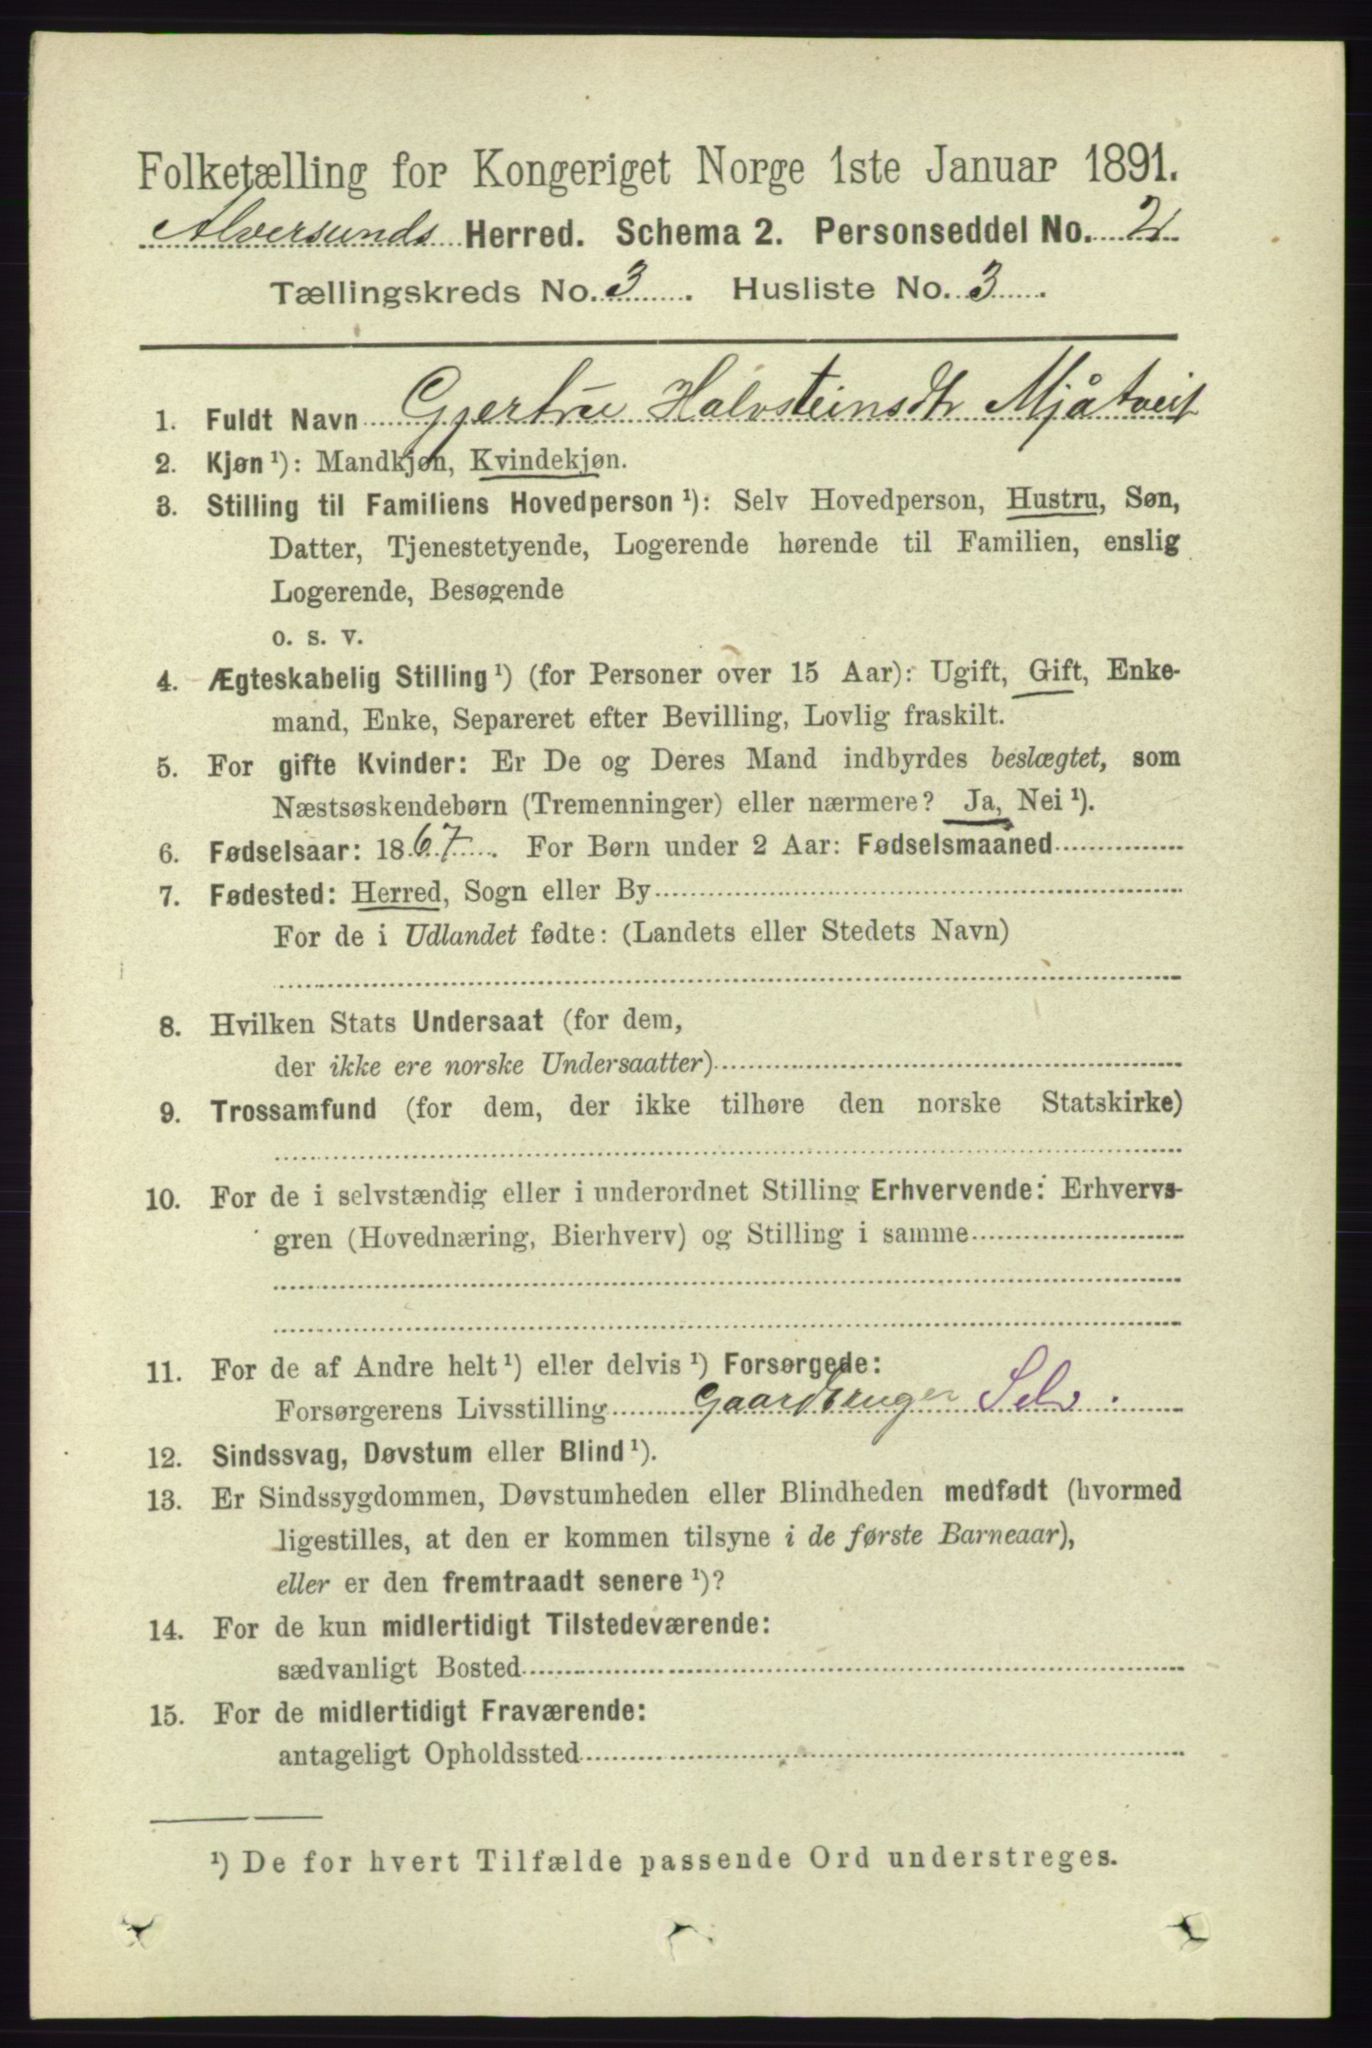 Folketælling for Kongeriget Norge 1ste Januar 1891.
Alversunds Herred. Schema 2. Personseddel No. 2
Tællingskreds No. 3. Husliste No. 3.
1. Fuldt Navn Gjertrue Halvsteinsdtr Mjåtveit
2. Kjøn ¹): Mandkjøn, Kvindekjøn.
3. Stilling til Familiens Hovedperson ¹): Selv Hovedperson, Hustru, Søn,
Datter, Tjenestetyende, Logerende hørende til Familien, enslig
Logerende, Besøgende
o. s. v.
4. Ægteskabelig Stilling ¹) (for Personer over 15 Aar): Ugift, Gift, Enke-
mand, Enke, Separeret efter Bevilling, Lovlig fraskilt.
5. For gifte Kvinder: Er De og Deres Mand indbyrdes beslægtet, som
Næstsøskendebørn (Tremenninger) eller nærmere? Ja, Nei ¹).
6. Fødselsaar: 1867. For Børn under 2 Aar: Fødselsmaaned
7. Fødested: Herred, Sogn eller By
For de i Udlandet fødte: (Landets eller Stedets Navn)
8. Hvilken Stats Undersaat (for dem,
der ikke ere norske Undersaatter)
9. Trossamfund (for dem, der ikke tilhøre den norske Statskirke)
10. For de i selvstændig eller i underordnet Stilling Erhvervende: Erhvervs-
gren (Hovednæring, Bierhverv) og Stilling i samme
11. For de af Andre helt ¹) eller delvis ¹) Forsørgede:
Forsørgerens Livsstilling Gaardbruger Selv.
12. Sindssvag, Døvstum eller Blind ¹).
13. Er Sindssygdommen, Døvstumheden eller Blindheden medfødt (hvormed
ligestilles, at den er kommen tilsyne i de første Barneaar),
eller er den fremtraadt senere ¹)?
14. For de kun midlertidigt Tilstedeværende:
sædvanligt Bosted
15. For de midlertidigt Fraværende:
antageligt Opholdssted
¹) De for hvert Tilfælde passende Ord understreges.